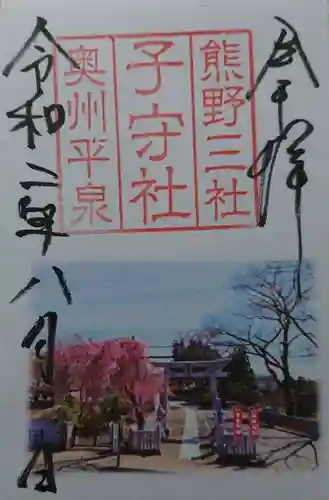 奉拝
熊野三社
子守社
奥州平泉
令和二年八月日